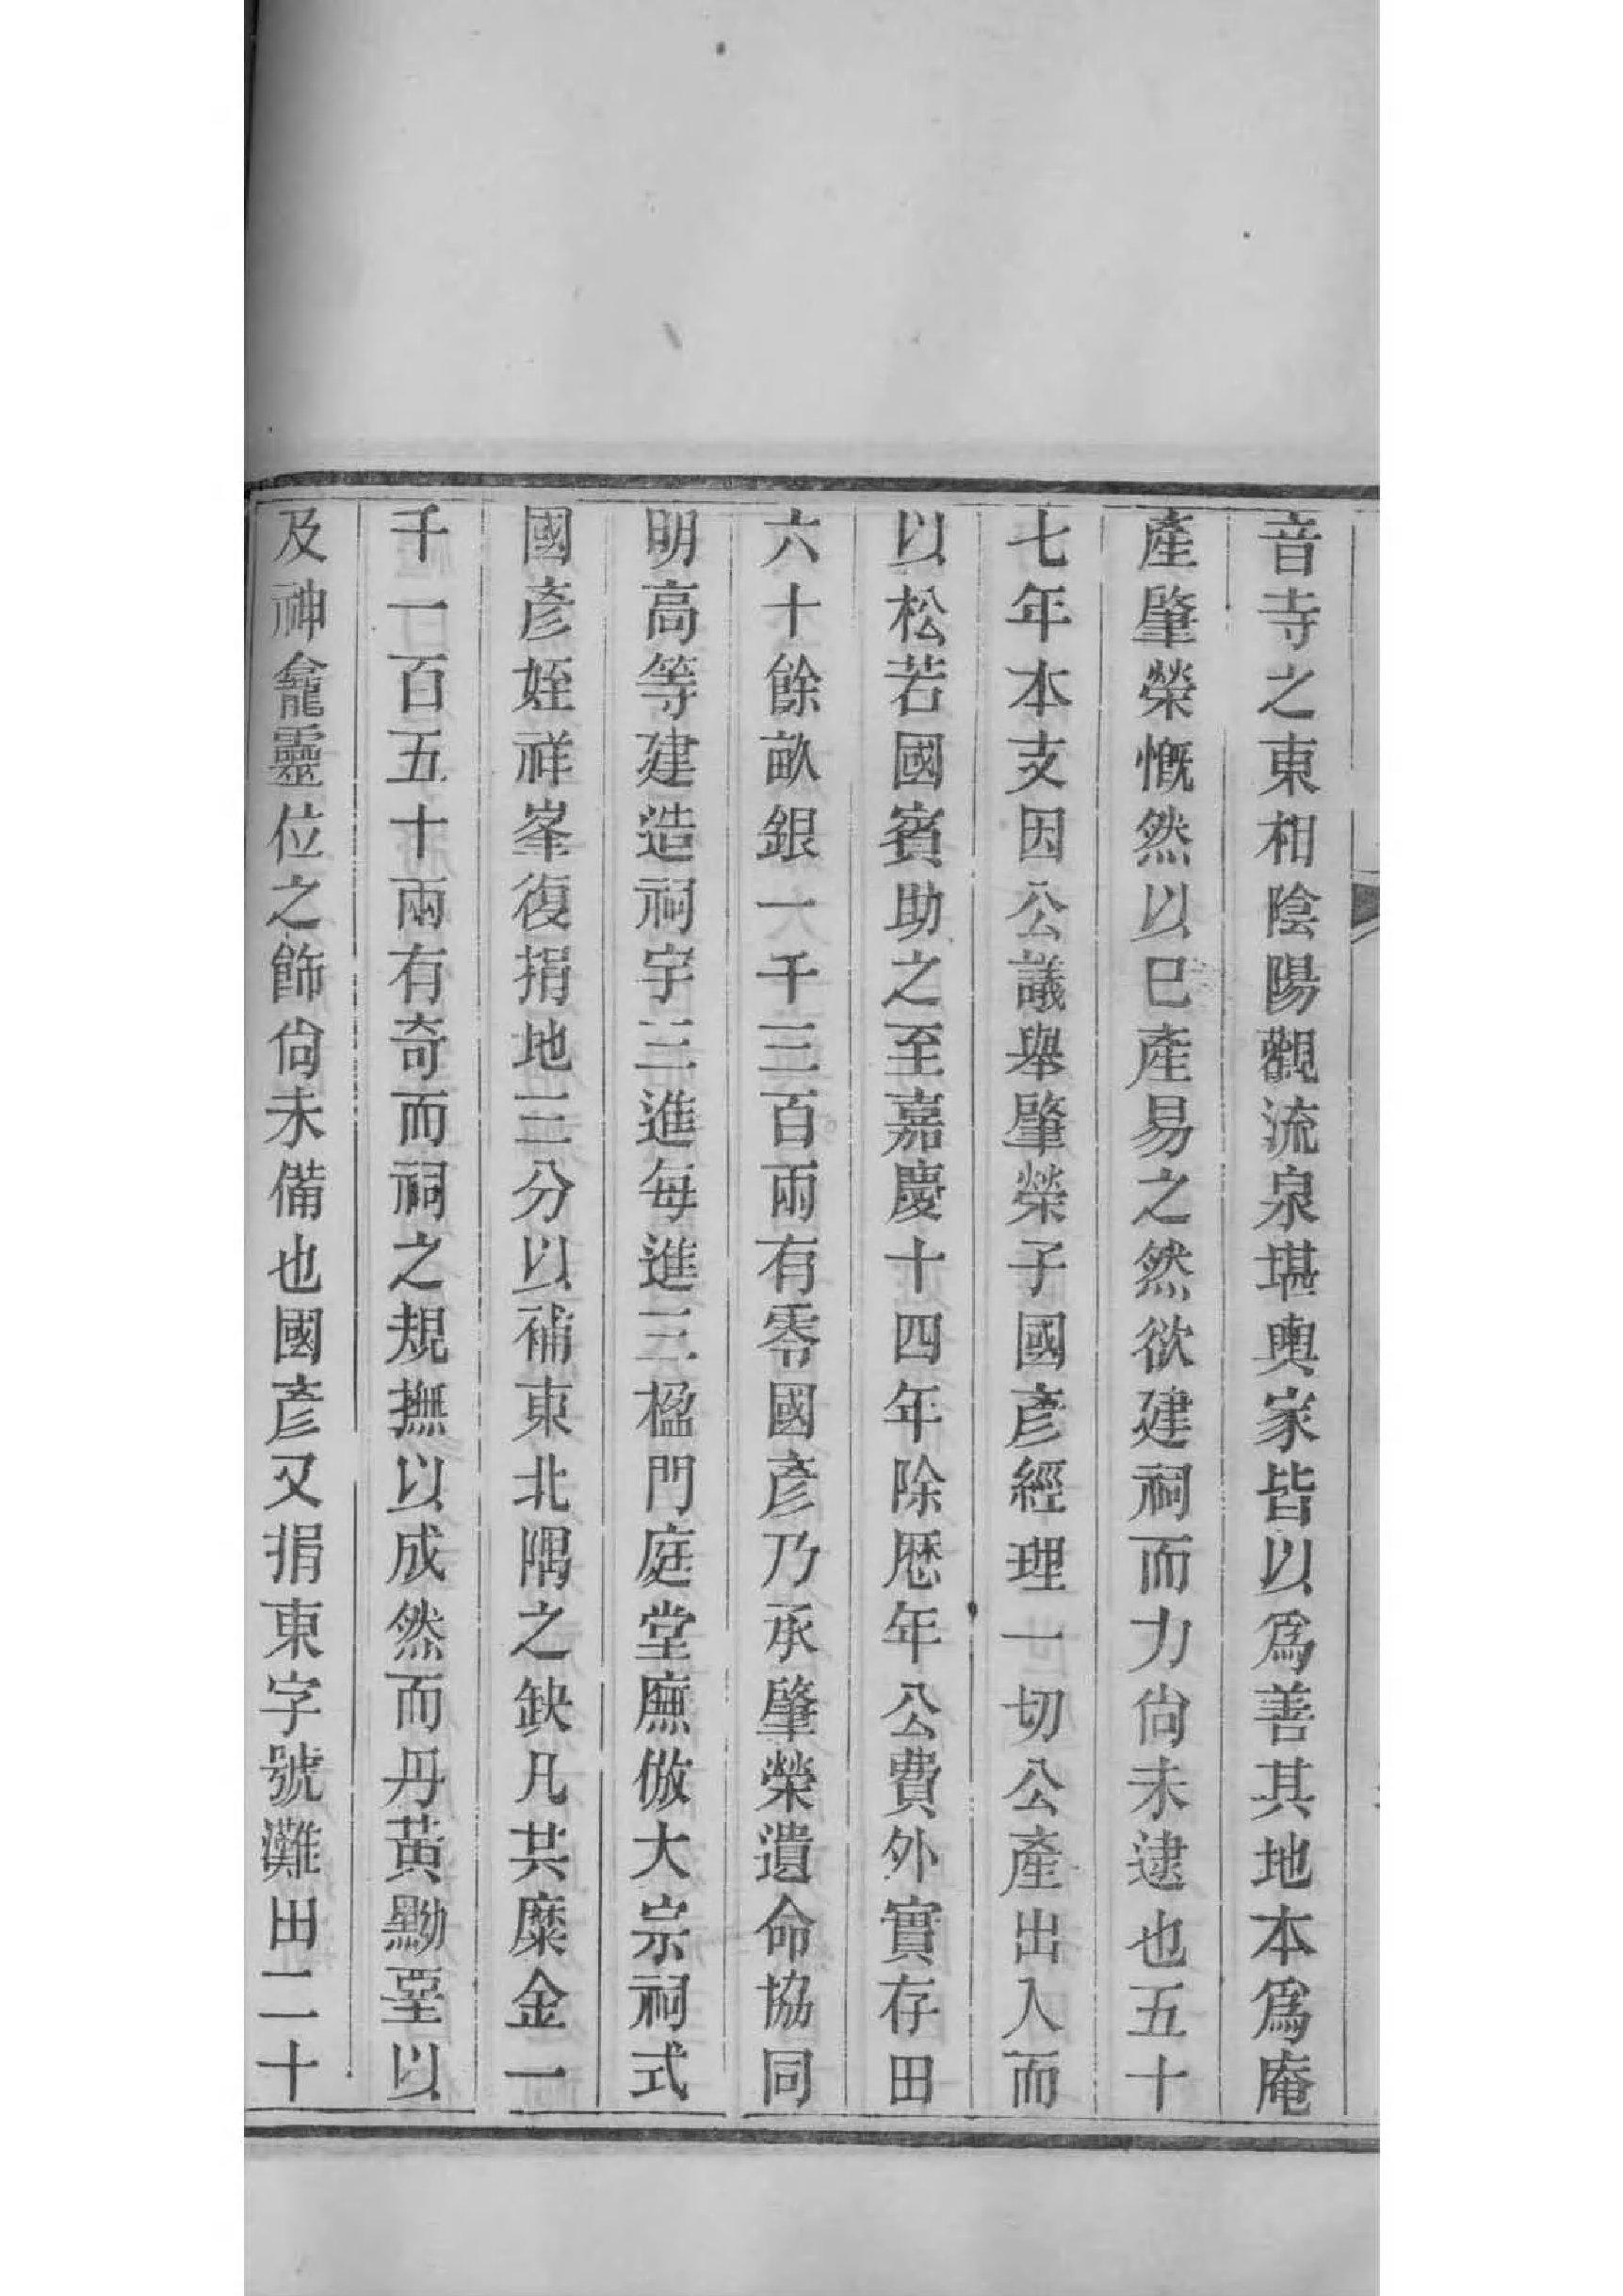 音寺之東相陰陽觀流泉堪輿家皆以爲善其地本爲庵
產肇榮慨然以巳產易之然欲建祠而力尙未逮也五十
七年本支因公議舉肇榮子國彥經理一切公產出入而
以松若國賓助之至嘉慶十四年除歷年公費外實存田
六十餘畝銀一千三百兩有零國彥乃承肇榮遺命協同
明高等建造祠宇三進每進三楹門庭堂廡倣大宗祠式
國彥姪祥峯復捐地三分以補東北隅之缺凡共糜金一
千一百五十兩有奇而祠之規撫以成然而丹黃黝堊以
及神龕靈位之飾尙未備也國彥又捐東字號灘田二十